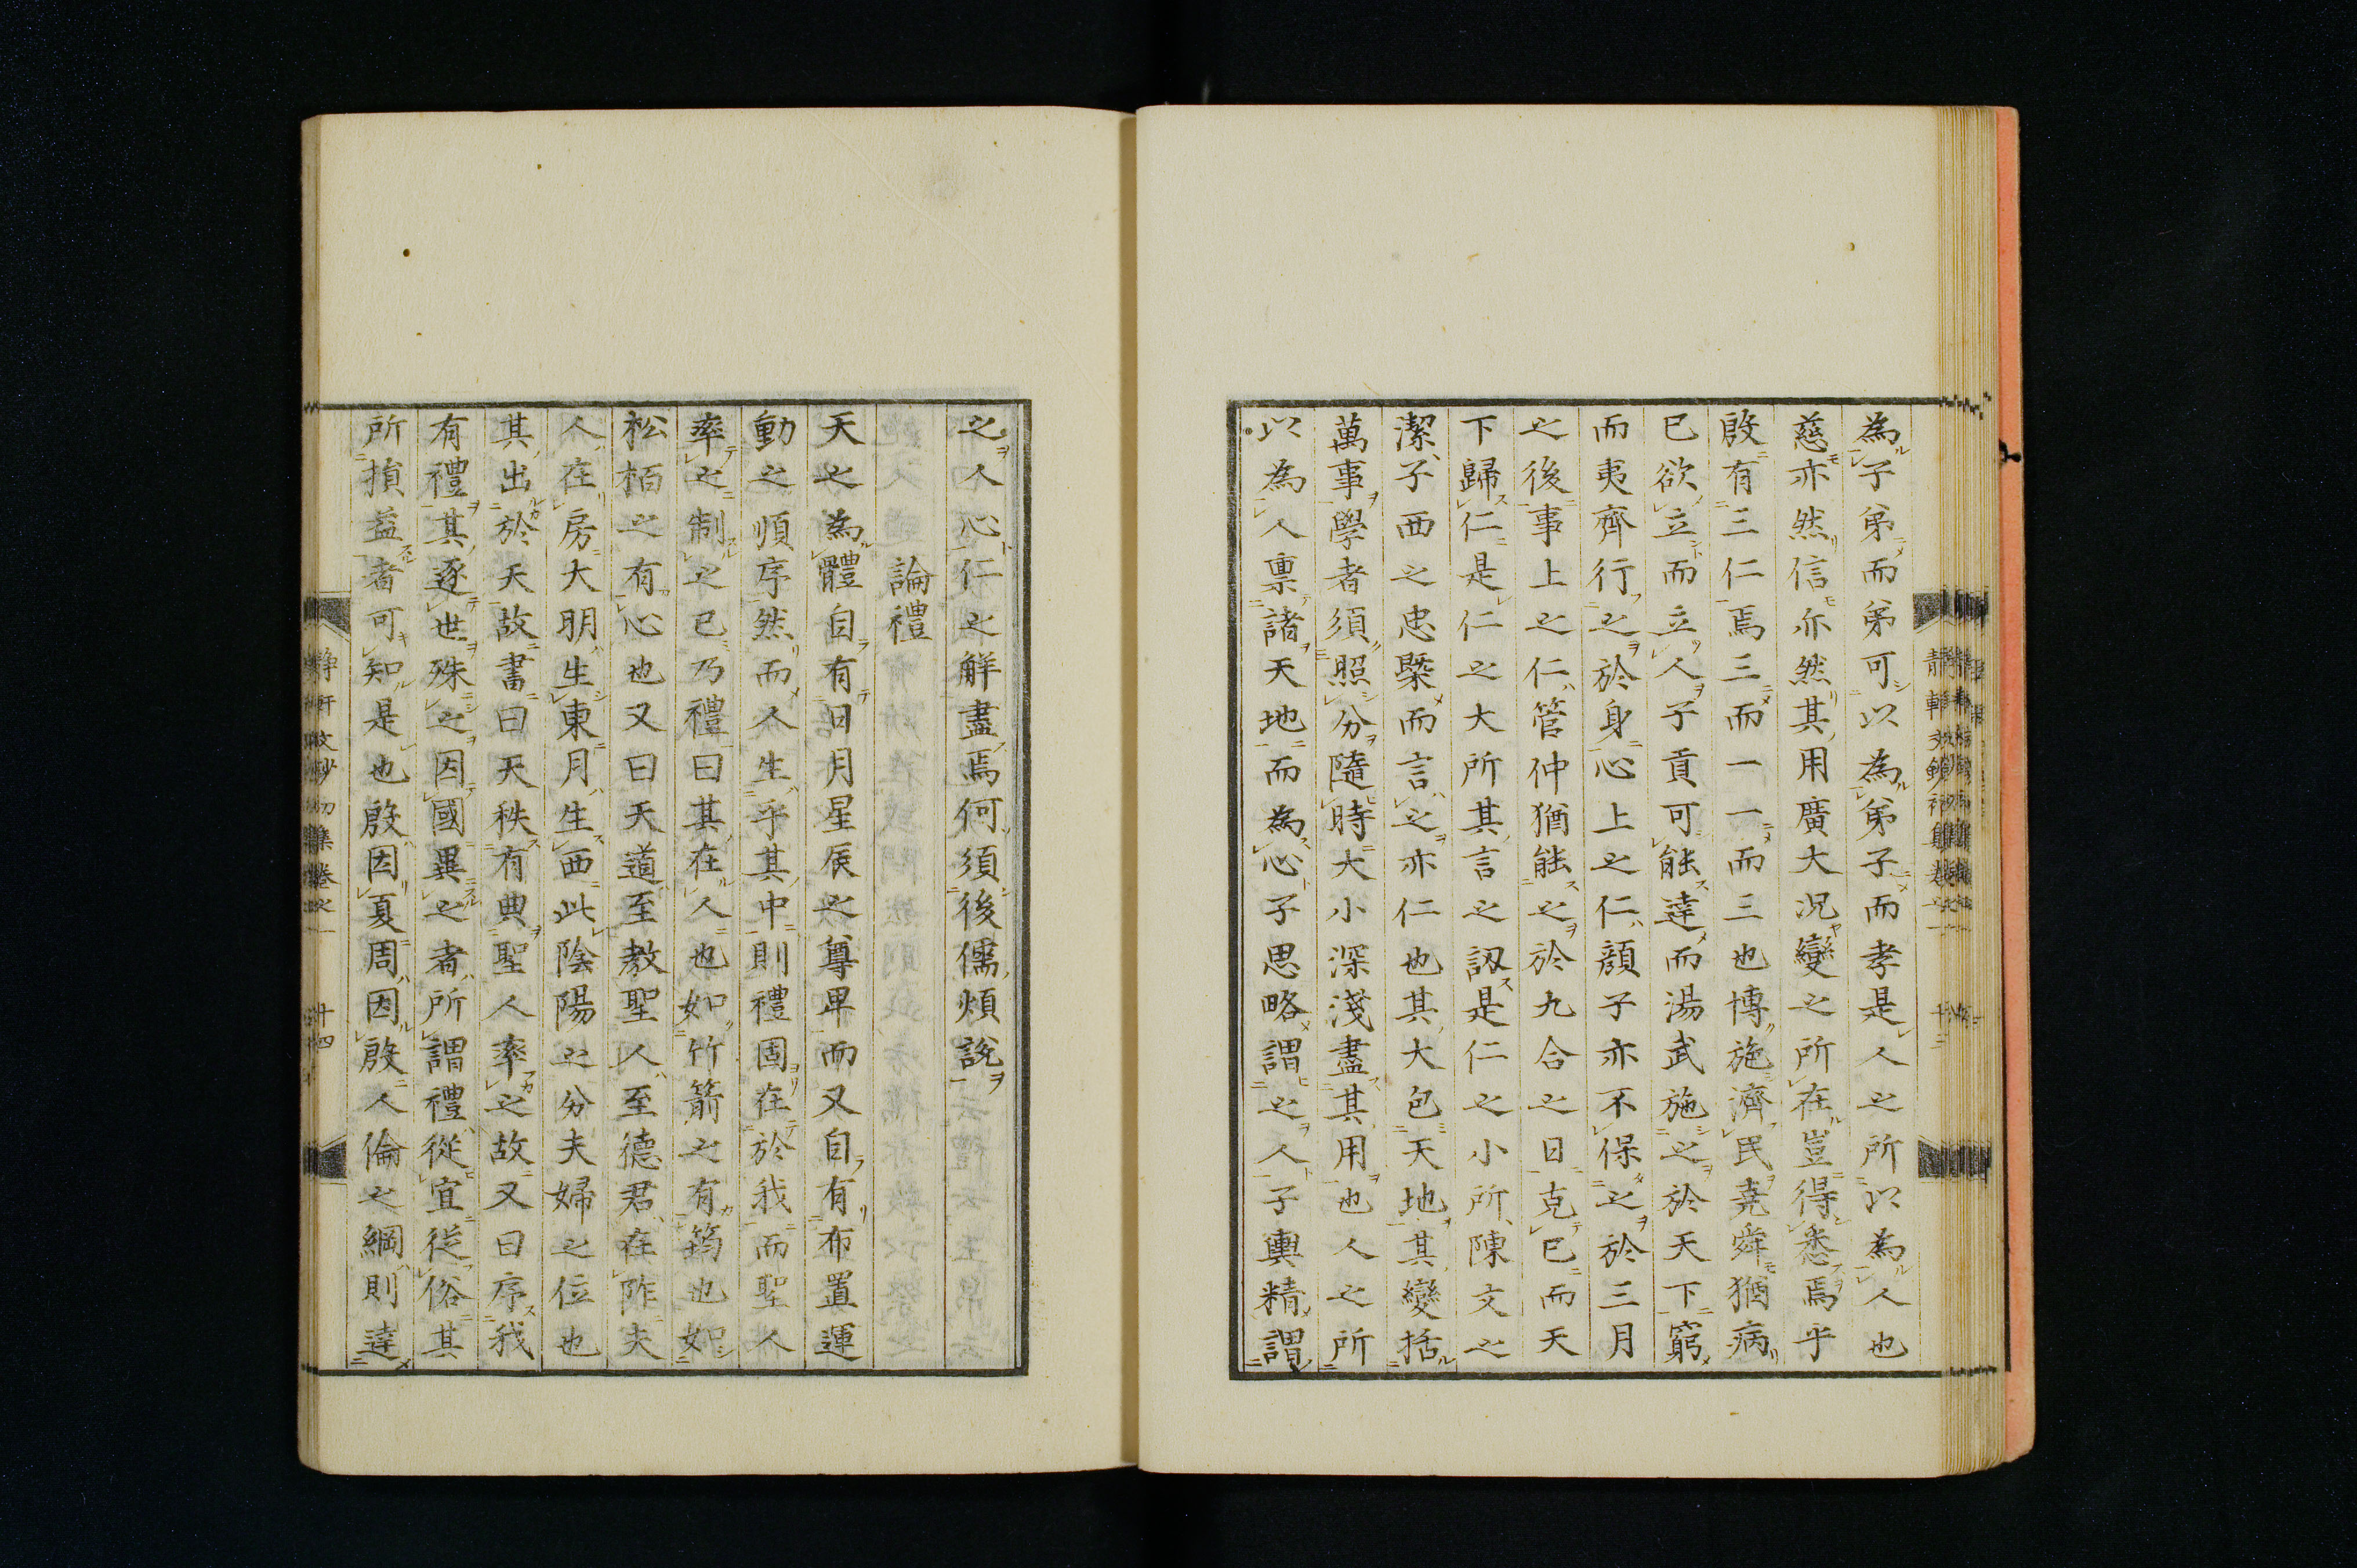 為子弟而弟可以為弟子而孝是人之所以為人也
慈亦然信亦然其用廣大況變之所在豈得悉焉乎
殷有三仁焉三而一一而三也博施濟民堯舜猶病
已欲立而立人子貢可能達而湯武施之於天下窮
而夷齊行之於身心上之仁顔子亦不保之於三月
之後事上之仁管仲猶能之於九合之日克已而天
下歸仁是仁之大所其言之訒是仁之小所陳文之
潔子西之忠槩而言之亦仁也其大包天地其變括
萬事學者須照分隨時大小深淺盡其用也人之所
以為人稟諸天地而為心子思略謂之人子輿精謂
之人心仁之解盡焉何須後儒煩說
論禮
天之為體自有日月星辰之尊卑而又自有布置運
動之順序然而人生乎其中則禮固在於我而聖人
率之制之已乃禮曰其在人也如竹箭之有筠也如
松栢之有心也又曰天道至教聖人至德君在阼夫
人在房大明生東月生西此陰陽之分夫婦之位也
其出於天故書曰天秩有典聖人率之故又曰序我
有禮其逐世殊之因國異之者所謂禮從宜從俗其
所損益者可知是也殷因夏周因殷人倫之綱則達
静軒文鈔初集卷之一 十四